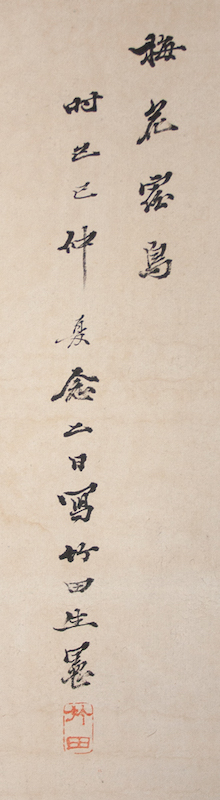 梅花鳥
时己巳仲夏念二日寫竹田生憲
竹田